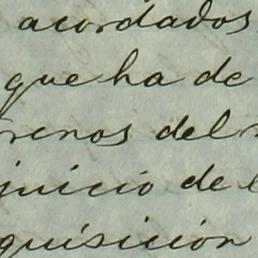 acordados
que ha de
renos del
juicio de
quisición